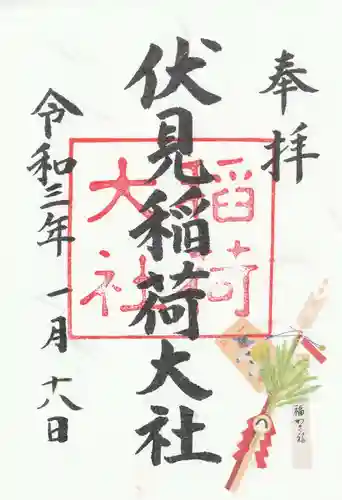 奉拝
伏見稲荷大社
稲荷
大社
令和三年一月十八日